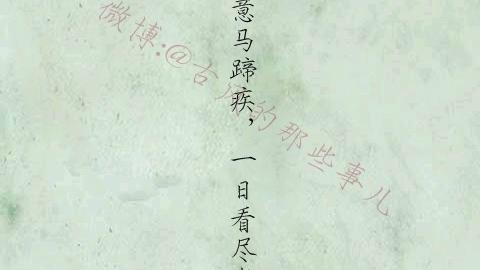 意马蹄疾，一日看尽
微博:@古风的那些事儿